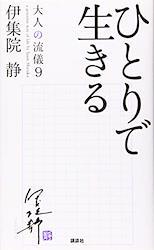 ひとりで
生きる
大人の流儀9
伊集院 静
講談社